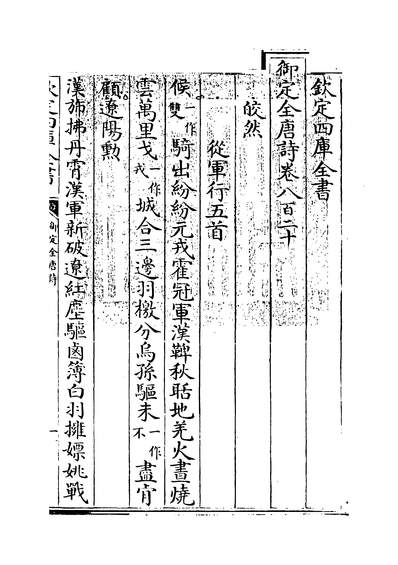 欽定四庫全書
御定全唐詩卷八百二十
皎然
從軍行五首
候一作雙騎出紛紛元戎霍冠軍漢鞞秋聒地羌火晝燒
雲萬里戈一作戍城合三邊羽檄分烏孫驅未一作不盡肯
顧遼陽勲
漢斾拂丹霄漢軍新破遼紅塵驅鹵簿白羽擁嫖姚戰
欽定四庫全書
御定全唐詩
一